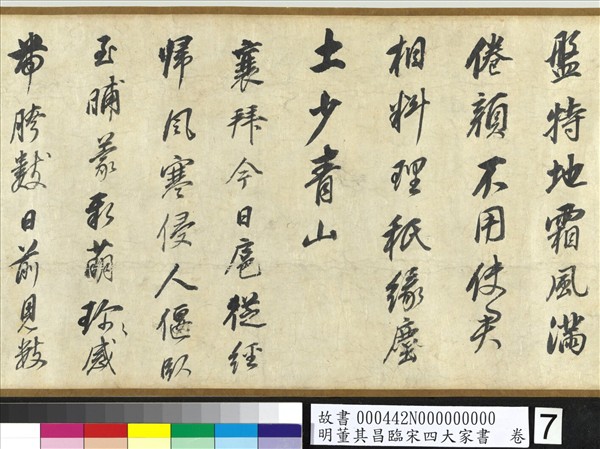 盤特地霜風滿
倦顏不用使君
相料理秖緣塵
土少青山
襄拜今日扈從經
歸風寒侵人偃臥
至晡蒙新萌珍〻感
帶胯數日前見數
故書 000442N000000000
明董其昌臨宋四大家書 卷
7